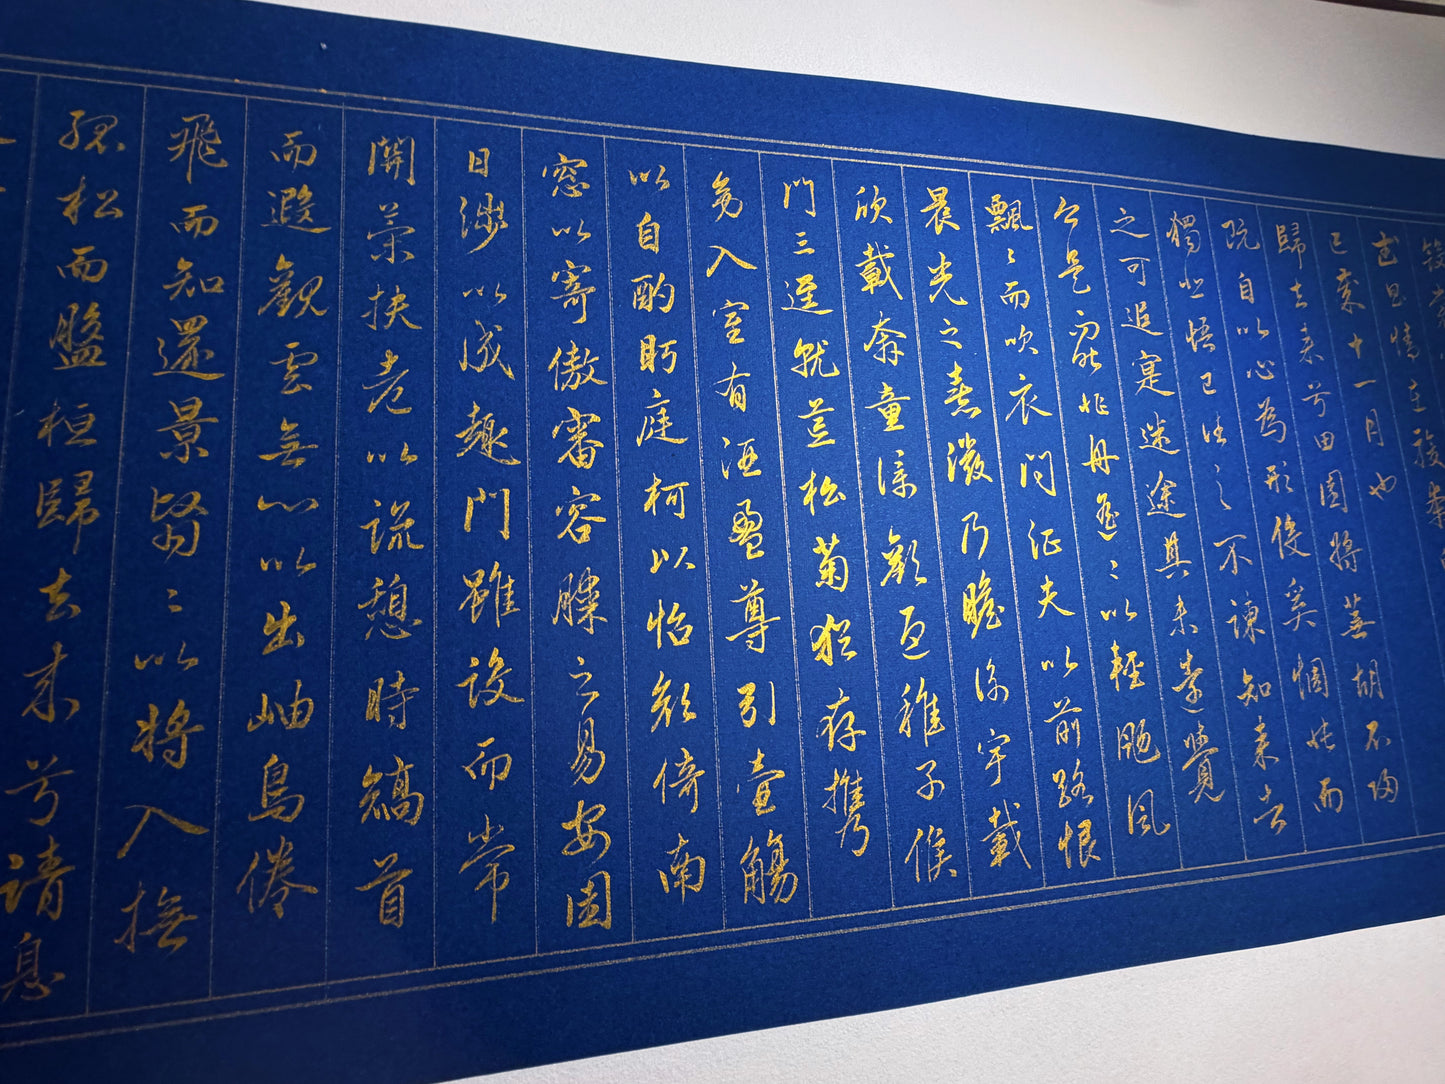 武昌情在駿奔
巳歲十一月也
歸去来兮田園將蕪胡不歸
既自以心為形役奚惆悵而
獨悲悟已往之不諫知来者
之可追寔迷途其未遠覺
今是而昨非舟遙〻以輕颺風
飄〻而吹衣問征夫以前路恨
晨光之熹微乃瞻衡宇載
欣載奔童僕歡迎稚子候
門三逕就荒松菊猶存携
幼入室有酒盈尊引壺觴
以自酌眄庭柯以怡顏倚南
窓以寄傲審容膝之易安園
日涉以成趣門雖設而常
關策扶老以流憩時矯首
而遐觀雲無心以出岫鳥倦
飛而知還景翳〻以將入撫
孤松而盤桓歸去来兮請息